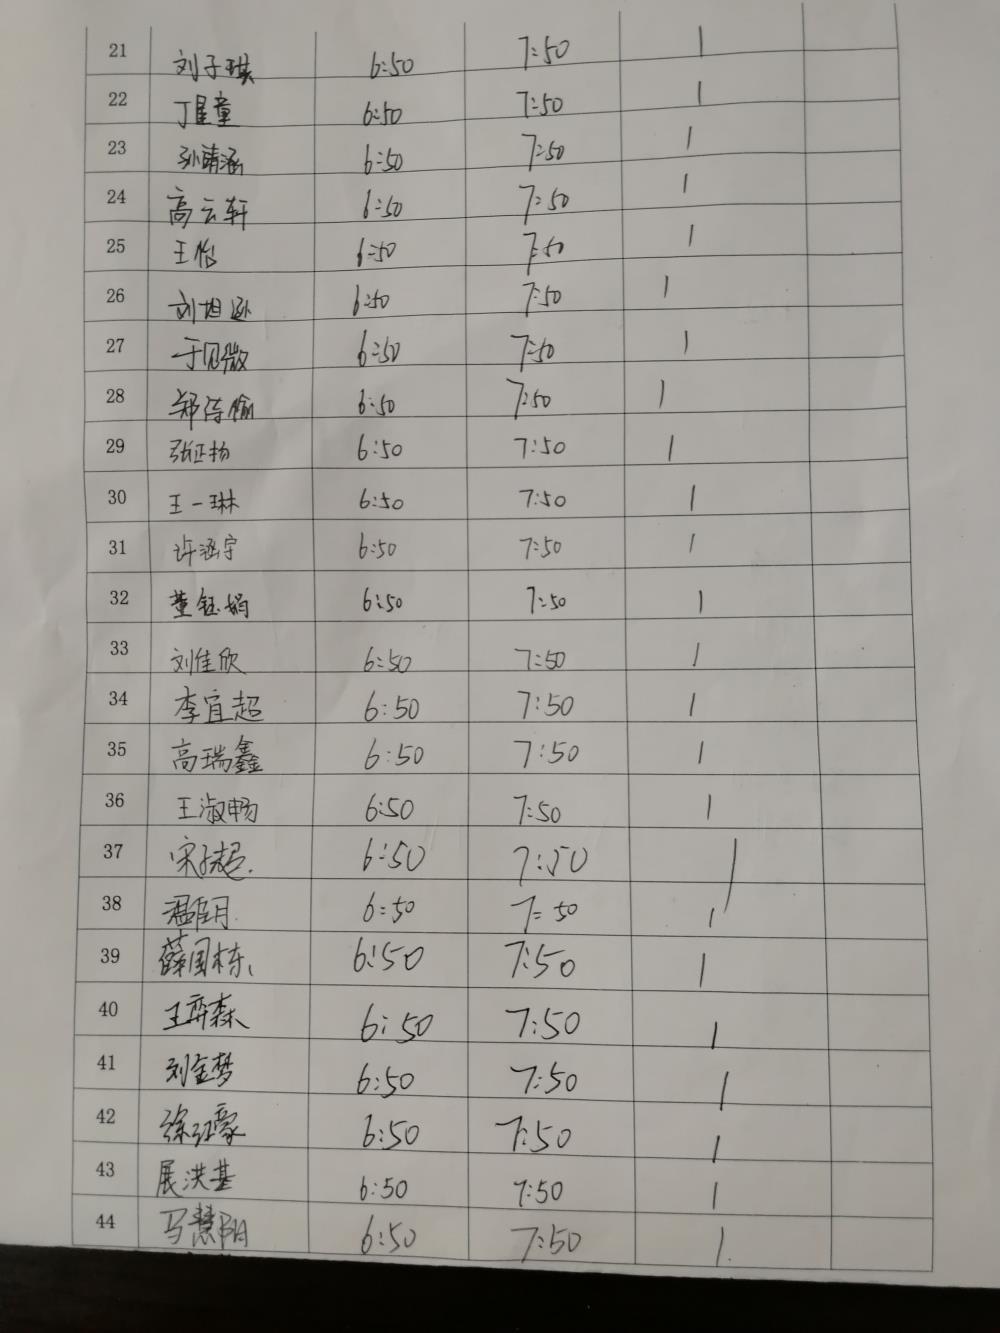 21 刘子琪 6:50 7:50 1
22 丁星童 6:50 7:50 1
23 孙靖涵 6:50 7:50 1
24 高云轩 6:50 7:50 1
25 王怡 6:50 7:50 1
26 刘旭 6:50 7:50 1
27 于见微 6:50 7:50 1
28 郑 6:50 7:50 1
29 张正扬 6:50 7:50 1
30 王一琳 6:50 7:50 1
31 许涵宇 6:50 7:50 1
32 董钰娟 6:50 7:50 1
33 刘佳欣 6:50 7:50 1
34 李宜超 6:50 7:50 1
35 高瑞鑫 6:50 7:50 1
36 王淑畅 6:50 7:50 1
37 宋子超 6:50 7:50 1
38 6:50 7:50 1
39 薛国栋 6:50 7:50 1
40 王弈森 6:50 7:50 1
41 刘金梦 6:50 7:50 1
42 徐征豪 6:50 7:50 1
43 展洪基 6:50 7:50 1
44 马慧阳 6:50 7:50 1